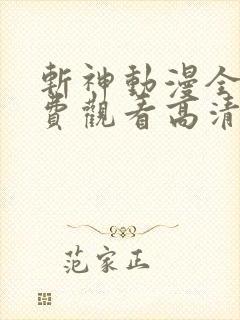 斬神動漫全
費觀看高清
范家正